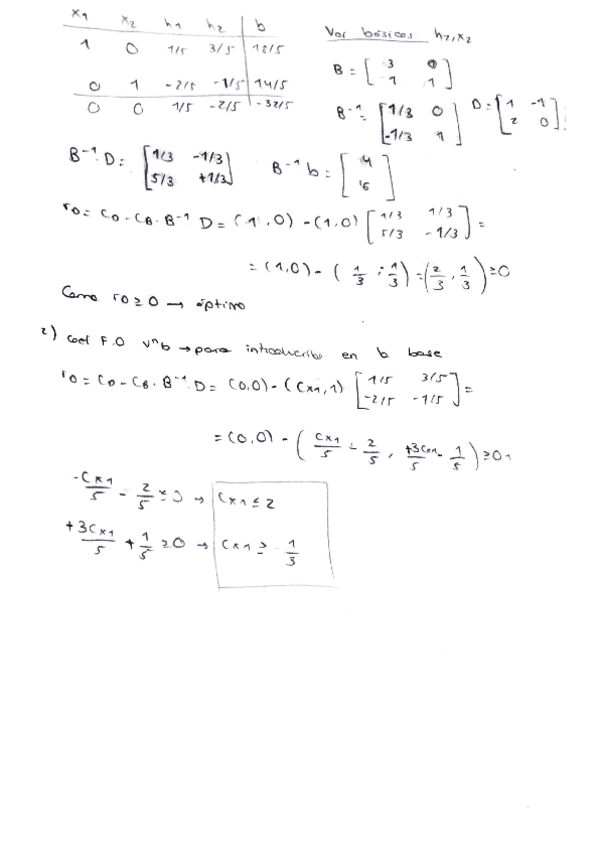 x1 x2 h1 h2 b
1 0 1/5 3/5 18/5
0 1 -2/5 -1/5 14/5
0 0 1/5 -2/5 -32/5
Var básicas h2, x2
B = [ 3 0 ; 1 1 ]
B⁻¹ = [ 1/3 0 ; -1/3 1 ] D = [ 1 -1 ; 2 0 ]
B⁻¹·D = [ 1/3 -1/3 ; 5/3 +1/3 ] B⁻¹b = [ 4 ; 6 ]
r0 = CD - CB · B⁻¹ D = (1, 0) - (1, 0) [ 1/3 1/3 ; 5/3 -1/3 ] =
= (1, 0) - ( 1/3 ; 1/3 ) = ( 2/3 , 1/3 ) ≥ 0
Como r0 ≥ 0 → óptimo
2) coef F.O vⁿb → para introducirlo en b base
r0 = CD - CB · B⁻¹ · D = (0, 0) - (Cx1, 1) [ 1/5 3/5 ; -2/5 -1/5 ] =
= (0, 0) - ( Cx1/5 - 2/5 , +3Cx1/5 - 1/5 ) ≥ 0
-Cx1/5 - 2/5 ≥ 0 → Cx1 ≤ 2
+3Cx1/5 + 1/5 ≥ 0 → Cx1 ≥ 1/3